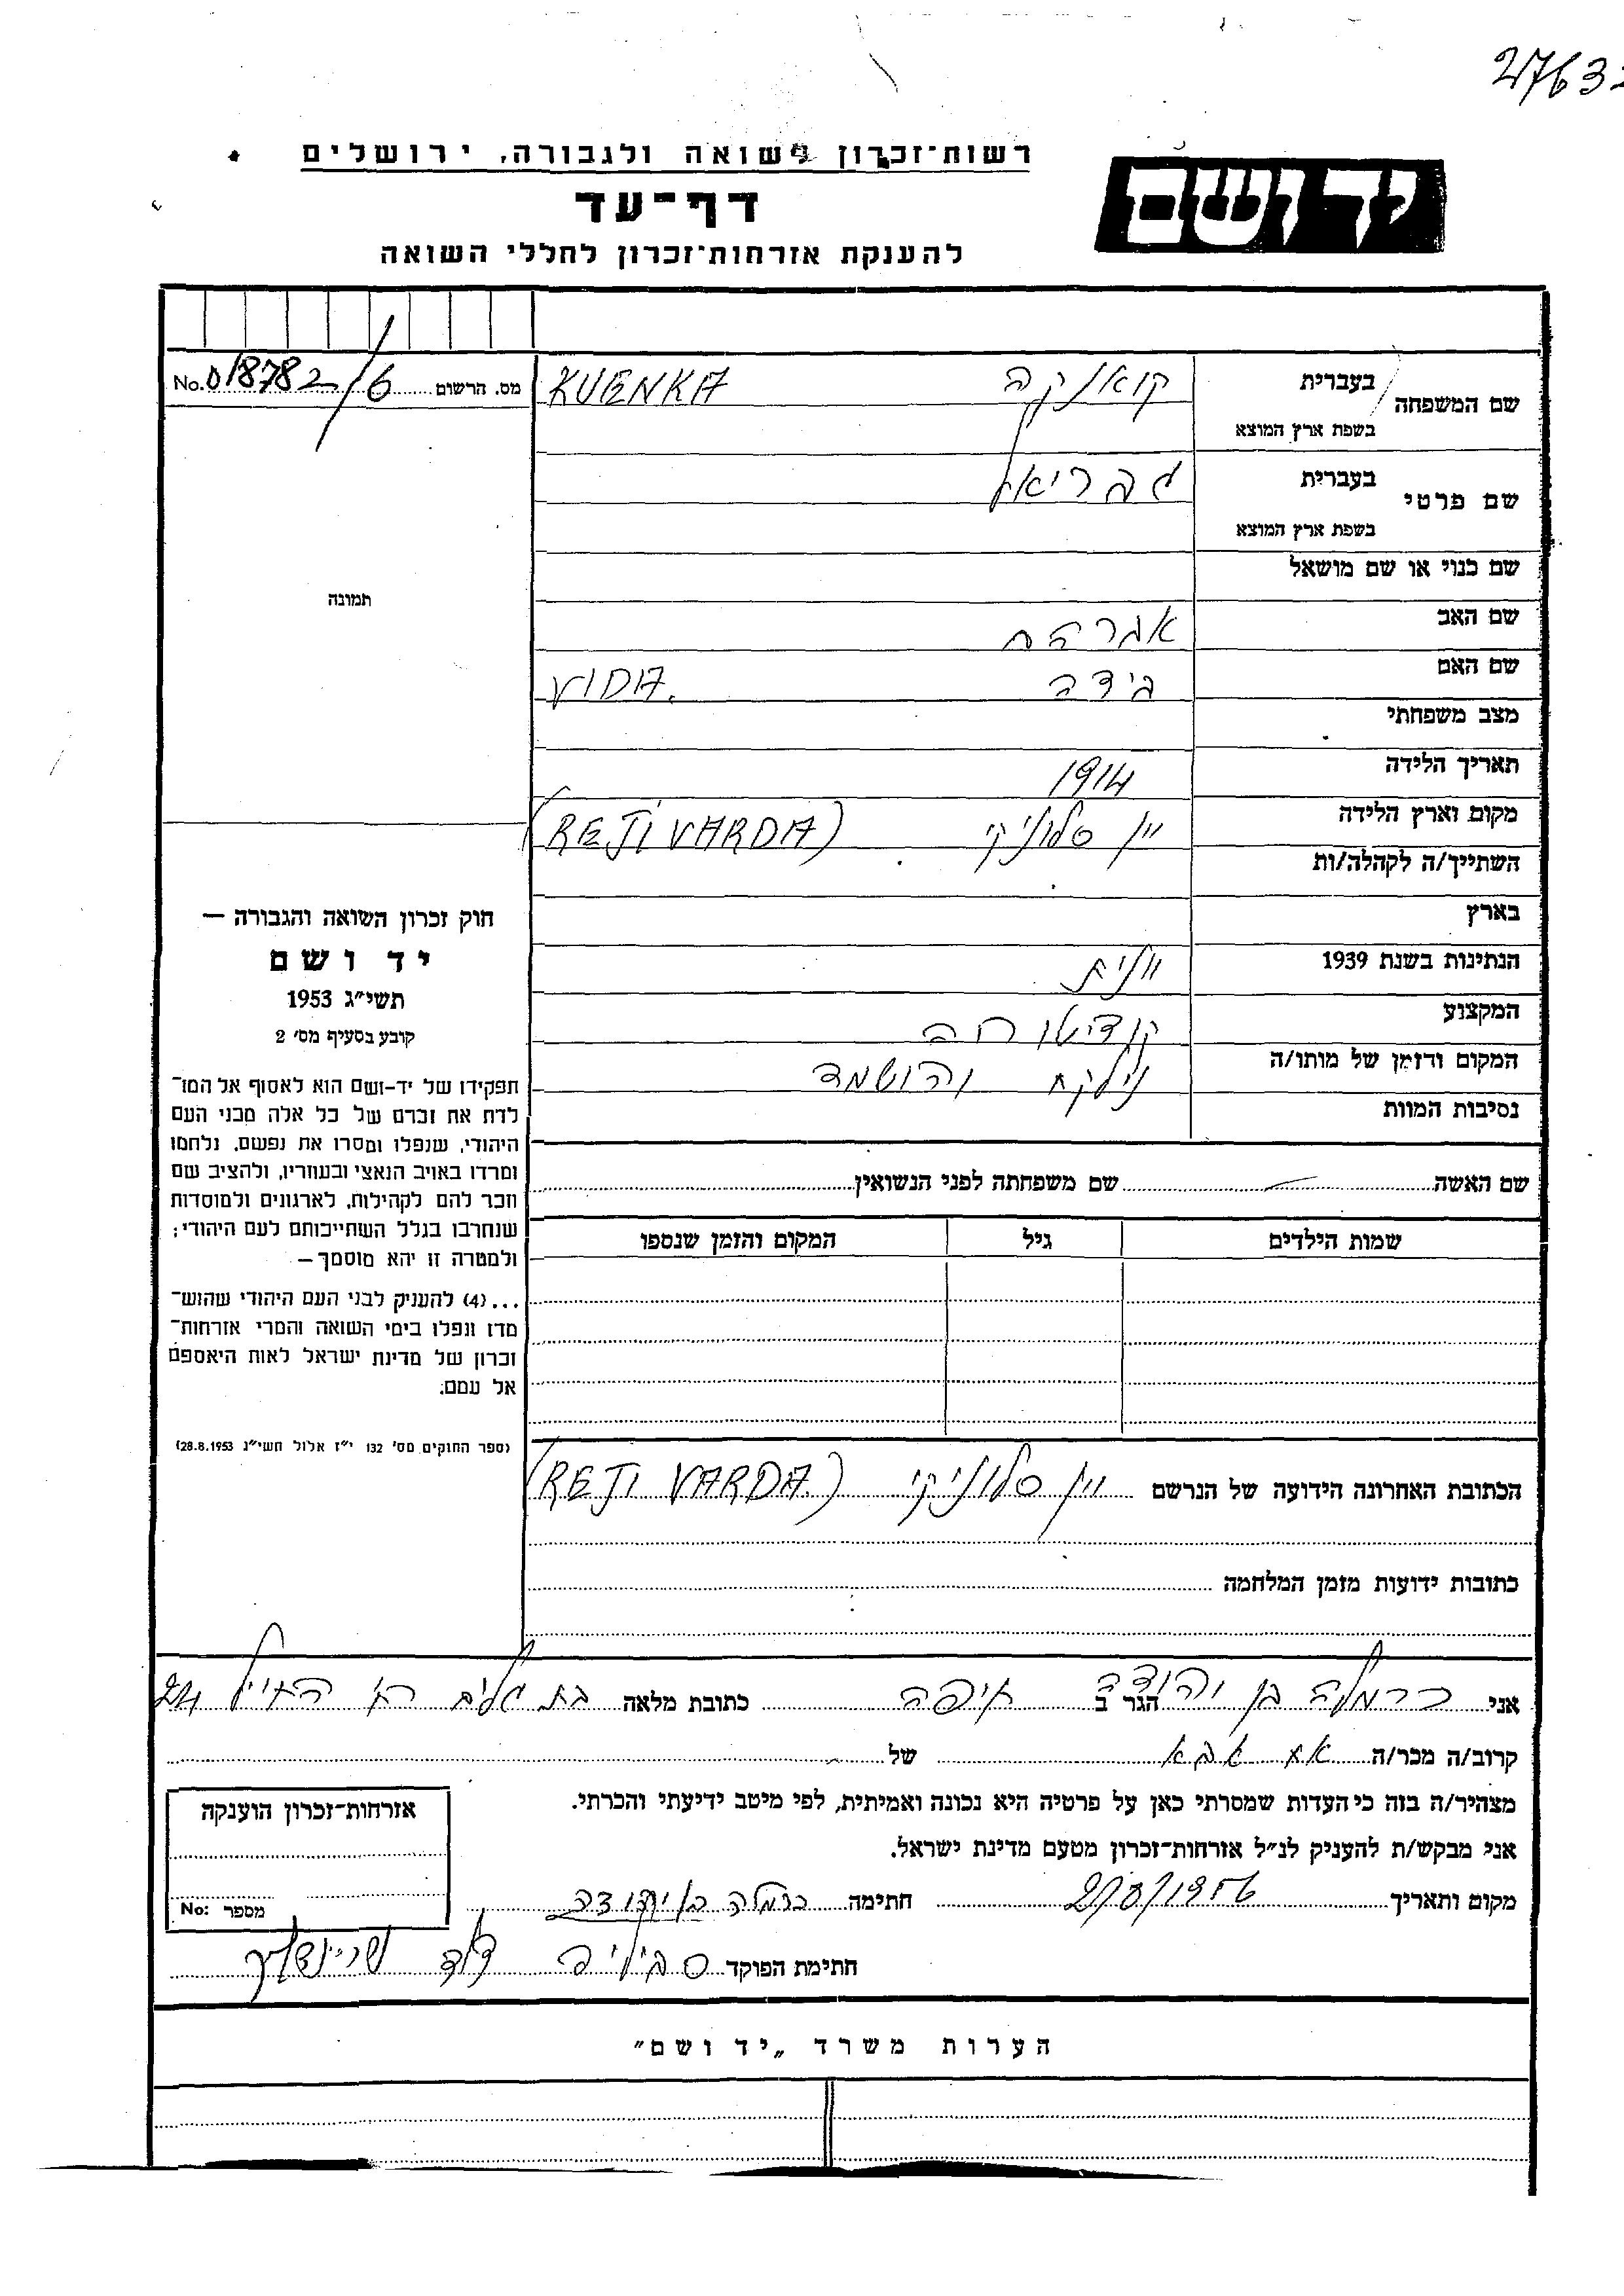 2763
רשות־זכרון לשואה ולגבורה, ירושלים
יד ושם
דף־עד
להענקת אזרחות־זכרון לחללי השואה
No. 018782/6 מס. הרשום
שם המשפחה בעברית קואנקה KUENKA
בשפת ארץ המוצא
שם פרטי בעברית גבריאל
בשפת ארץ המוצא
שם כנוי או שם מושאל
תמונה
שם האב אברהם
שם האם וידה VIDA
מצב משפחתי
תאריך הלידה 1914
מקום וארץ הלידה יון סלוניקי (REJI VARDA)
השתייך/ה לקהלה/ות
בארץ
הנתינות בשנת 1939 יונית
המקצוע
המקום והזמן של מותו/ה נילקח והושמד
נסיבות המוות
חוק זכרון השואה והגבורה —
יד ושם
תשי"ג 1953
קובע בסעיף מס' 2
תפקידו של יד-ושם הוא לאסוף אל המו־
לדת את זכרם של כל אלה מבני העם
היהודי, שנפלו ומסרו את נפשם, נלחמו
ומרדו באויב הנאצי ובעוזריו, ולהציב שם
וזכר להם לקהילות, לארגונים ולמוסדות
שנחרבו בגלל השתייכותם לעם היהודי;
ולמטרה זו יהא מוסמך —
...(4) להעניק לבני העם היהודי שהוש־
מדו ונפלו בימי השואה והמרי אזרחות־
זכרון של מדינת ישראל לאות היאספם
אל עמם.
(ספר החוקים מס' 132 י"ז אלול תשי"ג 28.8.1953)
שם האשה שם משפחתה לפני הנשואין
שמות הילדים גיל המקום והזמן שנספו
הכתובת האחרונה הידועה של הנרשם יון סלוניקי (REJI VARDA)
כתובות ידועות מזמן המלחמה
אני כרמלה בן יהודה הגר ב חיפה כתובת מלאה בת גלים רח' החיל 24
קרוב/ה מכר/ה אח אבא של
מצהיר/ה בזה כי העדות שמסרתי כאן על פרטיה היא נכונה ואמיתית, לפי מיטב ידיעתי והכרתי.
אני מבקש/ת להעניק לנ"ל אזרחות־זכרון מטעם מדינת ישראל.
מקום ותאריך 2/8/1956 חתימה כרמלה בן יהודה
חתימת הפוקד
אזרחות־זכרון הוענקה
No: מספר
הערות משרד „יד ושם"